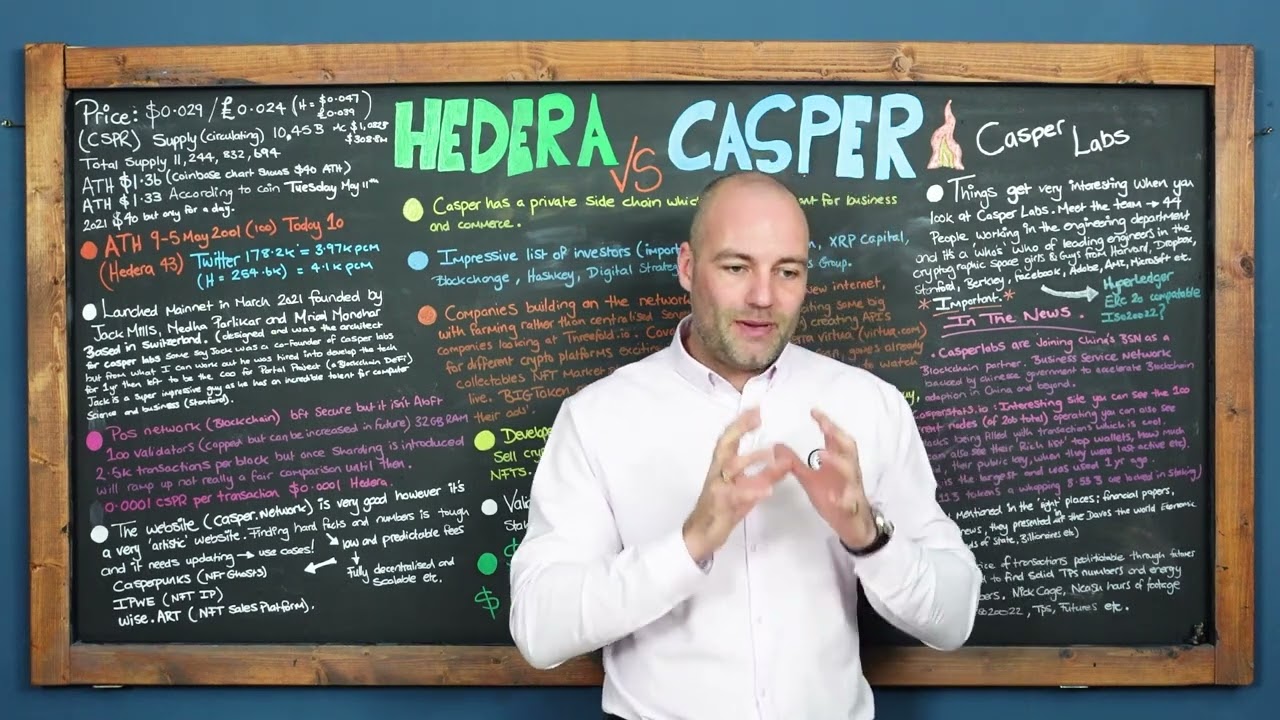 Price: $0.029 / £0.024 (H = $0.047 £0.039)
(CSPR) Supply (circulating) 10,453
Total Supply 11,244,832,694
ATH $1.36 (coinbase chart shows $40 ATH)
ATH $1.33 According to coin Tuesday May 11th
2021 $40 but only for a day.
ATH 9-5 May 2001 (100) Today 10
(Hedera 43) Twitter 178.2K = 3.97K pcm
(H = 254.6K) = 4.1K pcm
Lanched Mainnet in March 2021 founded by
Jack Mills, Medha Parlikar and Mrinal Manohar
Based in Switzerland. (designed and was the architect
for casper labs some say Jack was a co-founder of casper labs
but from what I can work out he was hired into develop the tech
for 1yr then left to be the CEO for Portal Project (a Blockchain DeFi)
Jack is a super impresive guy as he has an incredible talent for computer
Science and business (Stanford).
Pos network (Blockchain) bft Secure but it isn't ABFT
100 validators (capped but can be increased in future) 32GB RAM
2.5k transactions per block but once sharding is introduced
will ramp up not really a fair comparison until then.
0.0001 CSPR per transaction $0.0001 Hedera.
The website (casper.network) is very good however it's
a very 'artistic' website. Finding hard facts and numbers is tough
and it needs updating → use cases! low and predictable fees
Casperpunks (NFT Ghosts) Fully decentralised and
IPWE (NFT IP) Scalable etc.
Wise.ART (NFT Sales Platform).
HEDERA VS CASPER
Casper has a private side chain whic ant for business
and commerce.
Impressive list of investors (impor n, XRP Capital,
Blockchange, Hashkey, Digital Strate s Group.
Companies building on the network new internet,
with farming rather than centralised Serve ating some big
companies looking at Threefold.io. Cove ) creating APIs
for different crypto platforms exciti erra virtua (virtua.com)
collectables NFT Market games already
live. BIGToken to watch
their ads'.
Develope
Sell cry
NFTS.
Vali
Stak
$
$
Casper Labs
Things get very interesting when you
look at Casper Labs. Meet the team → 44
People working in the engineering department
and it's a 'who's' who of leading engineers in the
cryptographic space girls & Guys from Harvard, Dropbox,
Stanford, Berkley, Facebook, Adobe, Microsoft etc.
*Important* → HyperLedger
ERC 20 compatable
ISO20022?
In The News.
Casperlabs are Joining China's BSN as a
Blockchain partner. Business Service Network
backed by chinese government to accelerate Blockchain
adaption in China and beyond.
Casperstats.io: Interesting site you can see the 100
rent nodes (of 206 total) operating you can also see
locks being filled with transactions which is cool.
can also see their Rich list' top wallets, how much
their public key, when they were last active etc).
is the largest and was used 1 yr ago.
11.3 tokens a whopping 8.55 B are locked in Staking)
mentioned in the 'right' places; financial papers,
news, they presented at the Davos the World Economic
ds of State, Billionaires etc)
ice of transactions through futures
to find solid TPS numbers and energy
bers, Nick Cage, hours of footage
ISO20022, TPS, Futures etc.